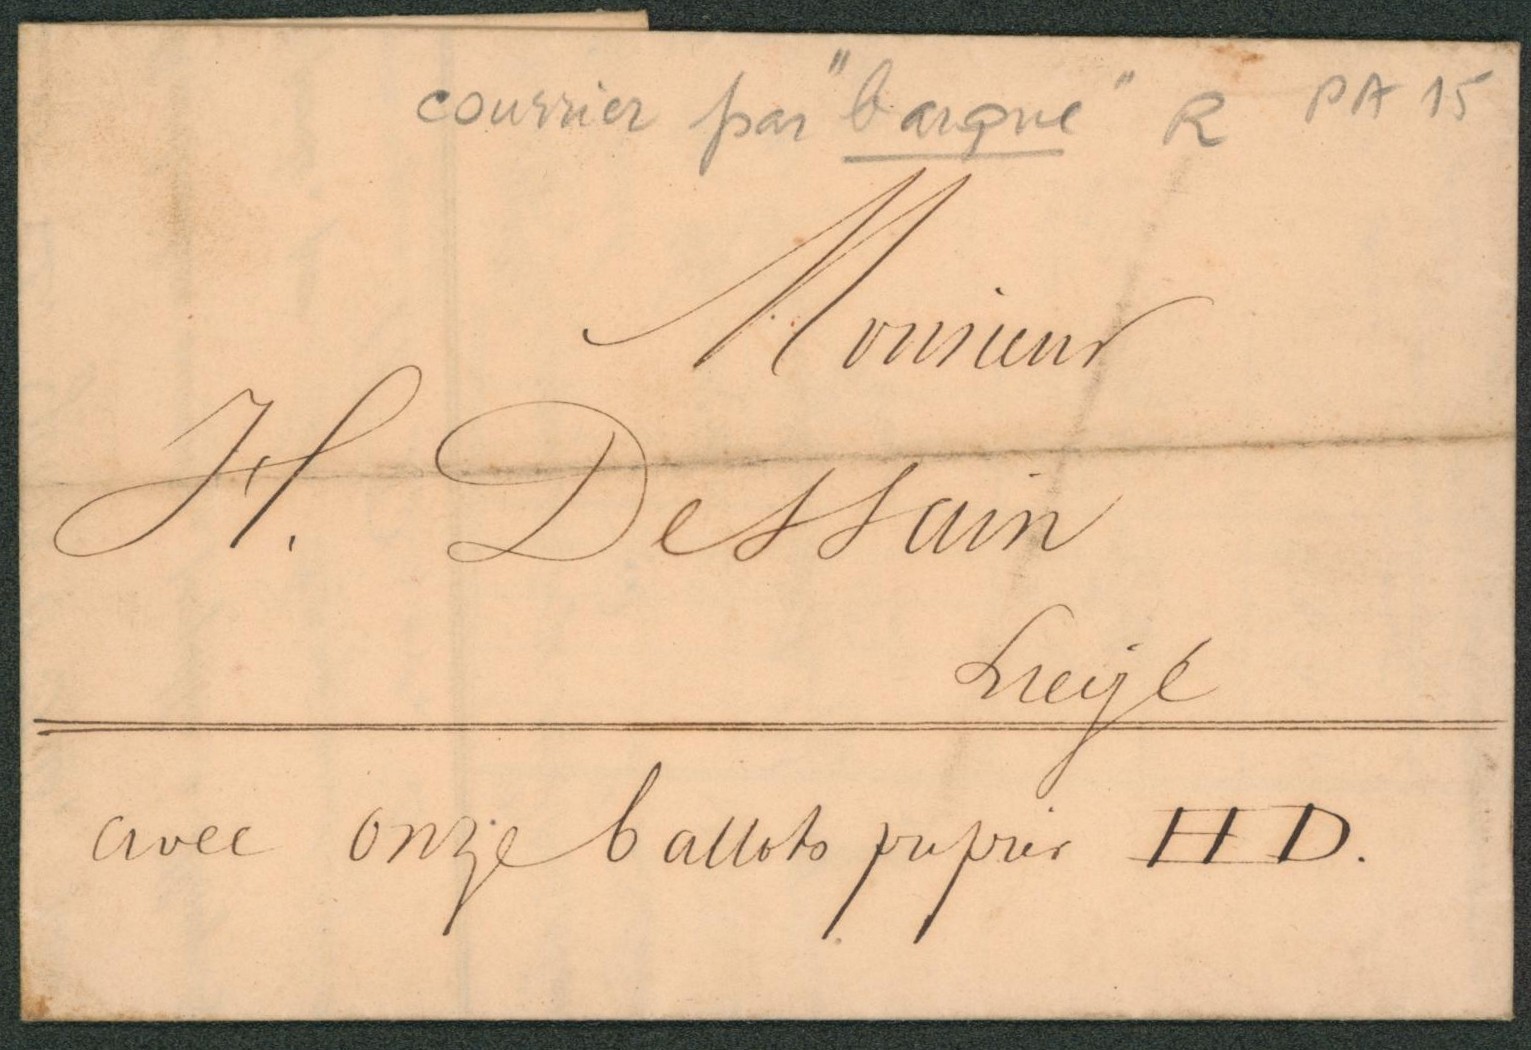 courrier par "barque" R PA 15
Monsieur
H. Dessain
Liège
avec onze ballots papier HD.